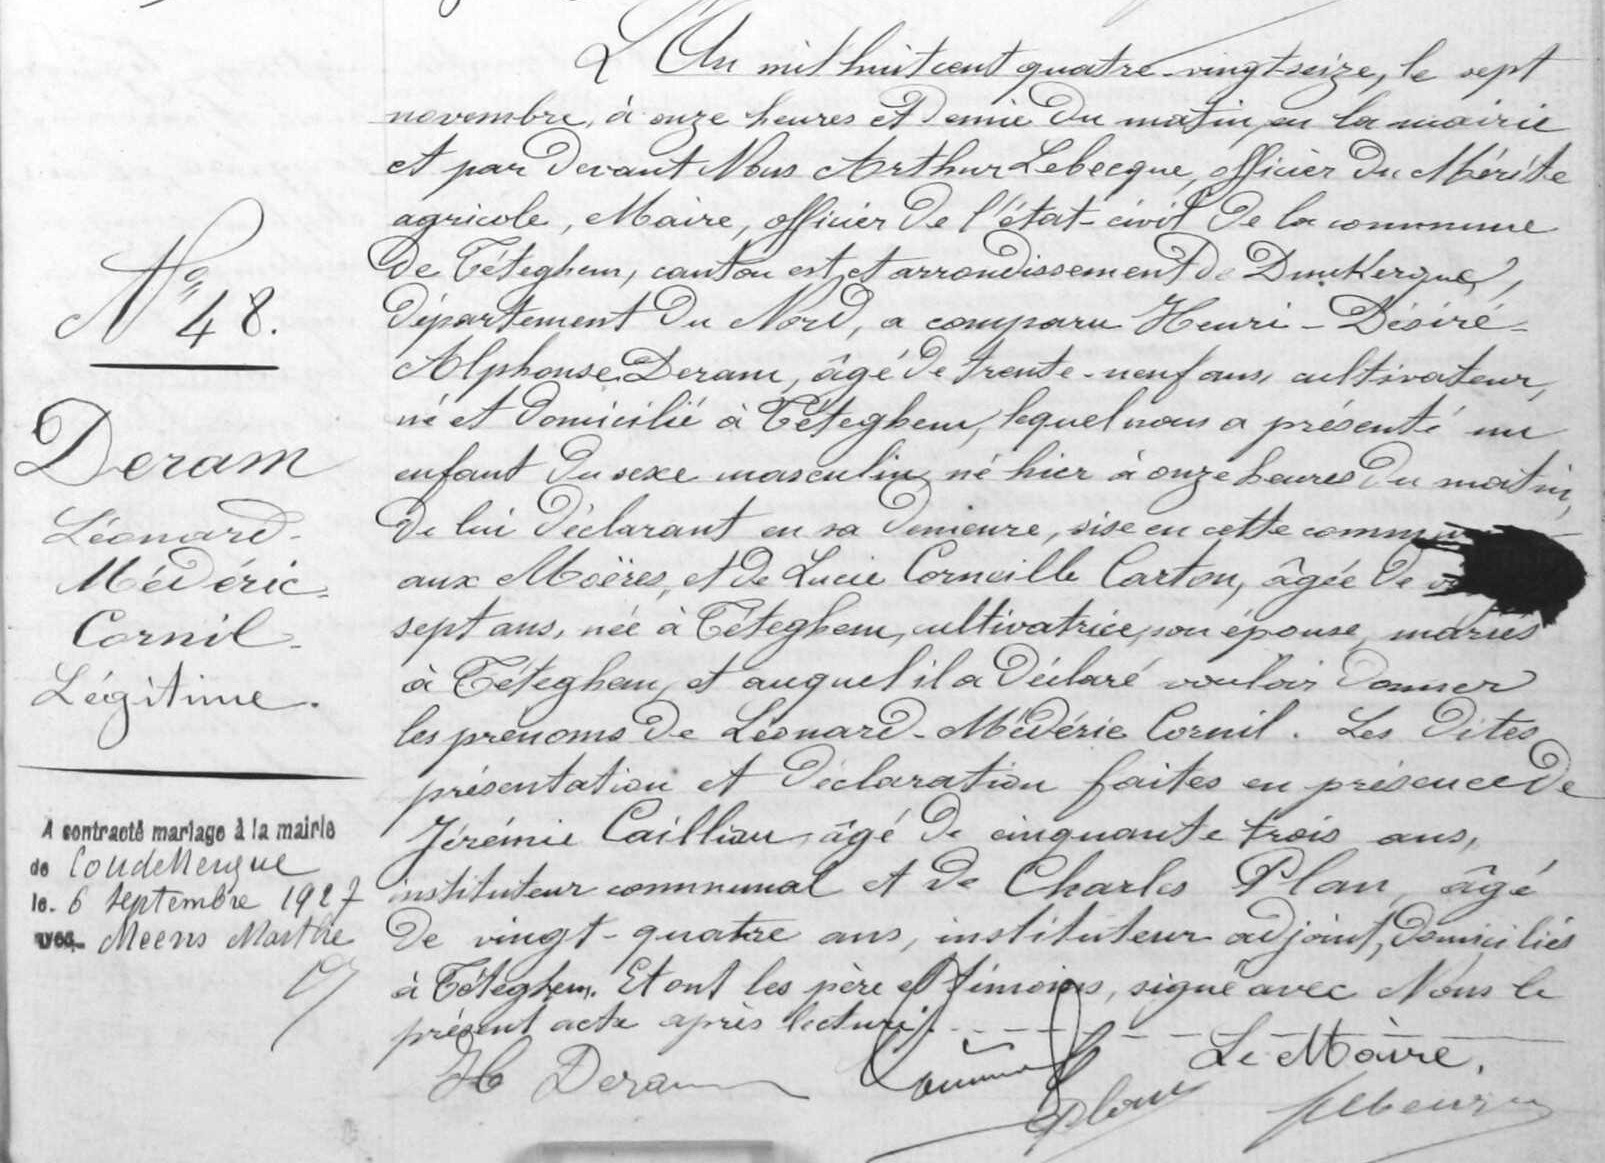 N° 48.
Deram
Léonard-
Médéric-
Cornil-
Légitime.
A contracté mariage à la mairie
de Coudekerque
le 6 septembre 1927
avec Meens Marthe
L'An mil huit cent quatre-vingt-seize, le sept
novembre, à onze heures et demie du matin, en la mairie
et par devant Nous Arthur Lebecque, officier du Mérite
agricole, Maire, officier de l'état-civil de la commune
de Téteghem, canton est et arrondissement de Dunkerque,
département du Nord, a comparu Henri-Désiré-
Alphonse Deram, âgé de trente-neuf ans, cultivateur,
né et domicilié à Téteghem, lequel nous a présenté un
enfant du sexe masculin, né hier à onze heures du matin,
de lui déclarant en sa demeure, sise en cette
aux Moëres, et de Lucie Corneille Carton, âgée de
sept ans, née à Téteghem, cultivatrice, son épouse, mariés
à Téteghem, et auquel il a déclaré vouloir donner
les prénoms de Léonard-Médéric Cornil. Les dites
présentation et déclaration faites en présence de
Jérémie Cailliau, âgé de cinquante trois ans,
instituteur communal et de Charles Plan, âgé
de vingt-quatre ans, instituteur adjoint, domiciliés
à Téteghem. Et ont les père et témoins, signé avec Nous le
présent acte après lecture.
H Deram
Le Maire,